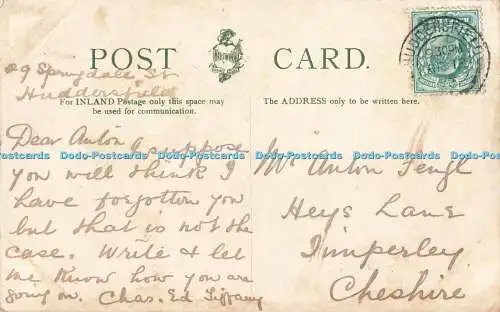 POST CARD.
29 Springdale St
Huddersfield
For INLAND Postage only this space may
be used for communication.
The ADDRESS only to be written here.
Dear Anton I suppose
you will think I
have forgotten you
but that is not the
case. Write & let
me know how you are
going on. Chas. Ed Tiffany
Mr Anton Sengl
Heys Lane
Timperley
Cheshire
HUDDERSFIELD
Dodo-Postcards Dodo-Postcards Dodo-Postcards Dodo-Postcards Dodo-Postcards